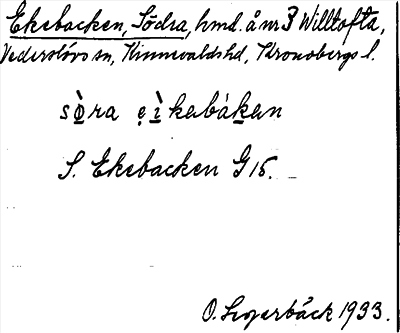 Ekebacken, Södra, hmd. å nr 3 Willtofta,
Vederslövs sn, Kinnevalds hd, Kronobergs l.
sö̀ra e̯ì̯kabàkan
S. Ekebacken G 15.
1933.